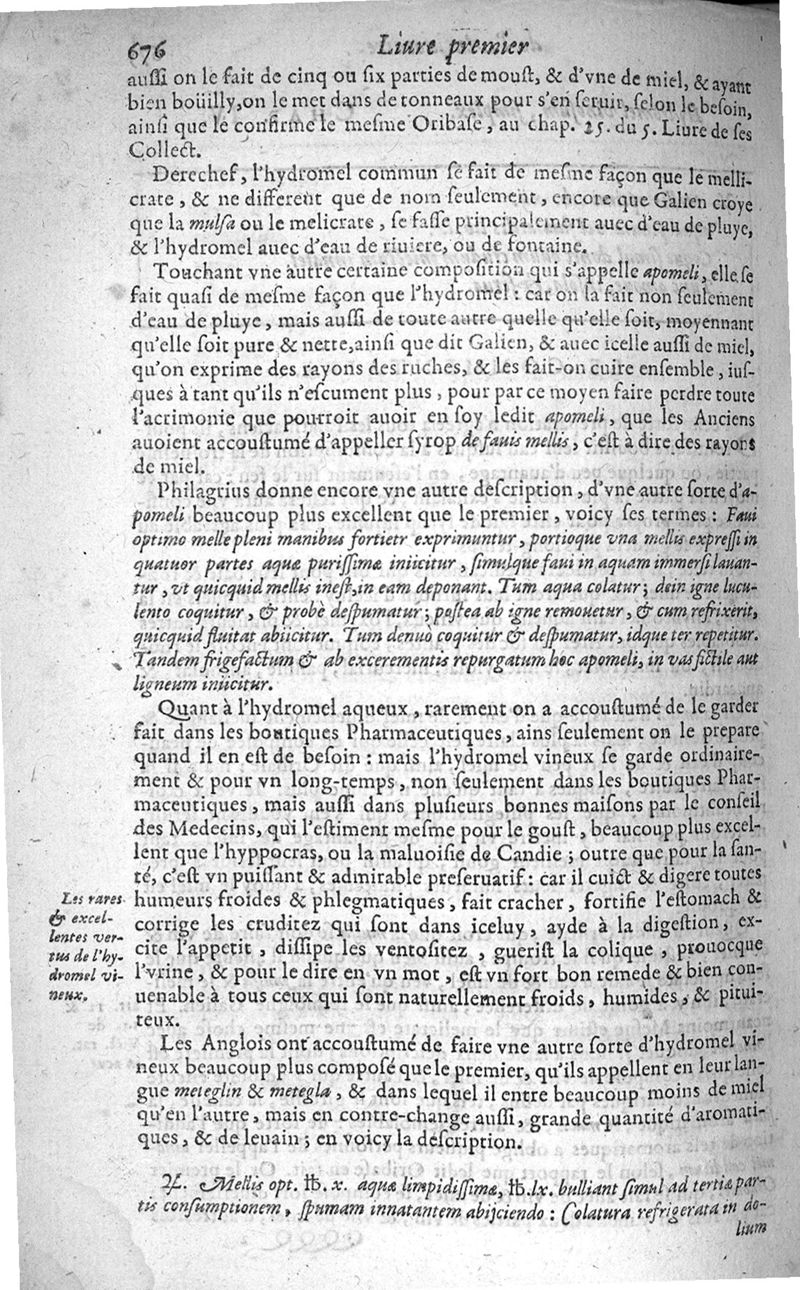 676 Liure premier
auſſi on le fait de cinq ou ſix parties de mouſt, & d'vne de miel, & ayant
bien boüilly, on le met dans de tonneaux pour s'en ſeruir, ſelon le beſoin,
ainſi que le confirme le meſme Oribaſe, au chap. 25. du 5. Liure de ſes
Collect.
Derechef, l'hydromel commun ſe fait de meſme façon que le melli-
crate, & ne different que de nom ſeulement, encore que Galien croye
que la mulſa ou le melicrate, ſe faſſe principalement auec d'eau de pluye,
& l'hydromel auec d'eau de riuiere, ou de fontaine.
Touchant vne autre certaine compoſition qui s'appelle apomeli, elle ſe
fait quaſi de meſme façon que l'hydromel : car on la fait non ſeulement
d'eau de pluye, mais auſſi de toute autre quelle qu'elle ſoit, moyennant
qu'elle ſoit pure & nette, ainſi que dit Galien, & auec icelle auſſi de miel,
qu'on exprime des rayons des ruches, & les fait-on cuire enſemble, iuſ-
ques à tant qu'ils n'eſcument plus, pour par ce moyen faire perdre toute
l'acrimonie que pourroit auoir en ſoy ledit apomeli, que les Anciens
auoient accouſtumé d'appeller ſyrop de fauis mellis, c'eſt à dire des rayons
de miel.
Philagrius donne encore vne autre deſcription, d'vne autre ſorte d'a-
pomeli beaucoup plus excellent que le premier, voicy ſes termes : Faui
optimo melle pleni manibus fortietr exprimuntur, portioque vna mellis expreſſi in
quatuor partes aquæ puriſſimæ iniicitur, ſimulque faui in aquam immerſi lauan-
tur, vt quicquid mellis ineſt, in eam deponant. Tum aqua colatur; dein igne lucu-
lento coquitur, & probè deſpumatur; poſtea ab igne remouetur, & cum refrixerit,
quicquid fluitat abiicitur. Tum denuò coquitur & deſpumatur, idque ter repetitur.
Tandem frigefactum & ab excerementis repurgatum hoc apomeli, in vas fictile aut
ligneum iniicitur.
Quant à l'hydromel aqueux, rarement on a accouſtumé de le garder
fait dans les boutiques Pharmaceutiques, ains ſeulement on le prepare
quand il en eſt de beſoin : mais l'hydromel vineux ſe garde ordinaire-
ment & pour vn long-temps, non ſeulement dans les boutiques Phar-
maceutiques, mais auſſi dans pluſieurs bonnes maiſons par le conſeil
des Medecins, qui l'eſtiment meſme pour le gouſt, beaucoup plus excel-
lent que l'hyppocras, ou la maluoiſie de Candie ; outre que pour la ſan-
té, c'eſt vn puiſſant & admirable preſeruatif : car il cuict & digere toutes
humeurs froides & phlegmatiques, fait cracher, fortifie l'eſtomach &
corrige les cruditez qui ſont dans iceluy, ayde à la digeſtion, ex-
cite l'appetit, diſſipe les ventoſitez, guerit la colique, prouocque
l'vrine, & pour le dire en vn mot, eſt vn fort bon remede & bien con-
uenable à tous ceux qui ſont naturellement froids, humides, & pitui-
teux.
Les rares
& excel-
lentes ver-
tus de l'hy-
dromel vi-
neux.
Les Anglois ont accouſtumé de faire vne autre ſorte d'hydromel vi-
neux beaucoup plus compoſé que le premier, qu'ils appellent en leur lan-
gue meteglin & metegla, & dans lequel il entre beaucoup moins de miel
qu'en l'autre, mais en contre-change auſſi, grande quantité d'aromati-
ques, & de leuain ; en voicy la deſcription.
♃. Mellis opt. ℔. x. aquæ limpidiſſimæ, ℔. lx. bulliant ſimul ad tertiæ par-
tis conſumptionem, ſpumam innatantem abijciendo : Colatura refrigerata in do-
lium